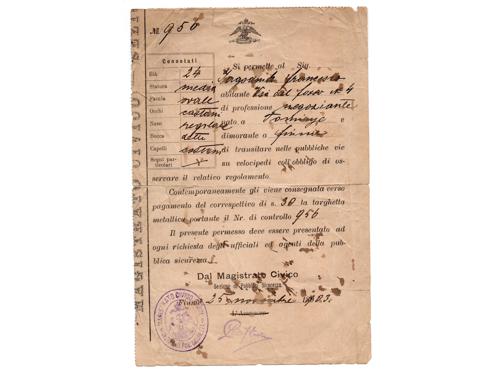 № 956
Connotati
Età 24
Statura media
Faccia ovale
Occhi castani
Naso regolare
Bocca
Capelli castani
Segni particolari
Si permette al Sig.
Francesco
abitante Via del Fosso № 4
di professione negoziante
nato a e
dimorante a Fiume
di transitare nelle pubbliche vie
su velocipedi coll'obbligo di os-
servare il relativo regolamento.
Contemporaneamente gli viene consegnata verso
pagamento del correspettivo di s. 30 la targhetta
metallica portante il Nr. di controllo 956
Il presente permesso deve essere presentato ad
ogni richiesta degli ufficiali ed agenti della pub-
blica sicurezza.
Dal Magistrato Civico
Sezione di Pubblica Sicurezza
Fiume 25 novembre 1903.
L'Assessore
MAGISTRATO CIVICO